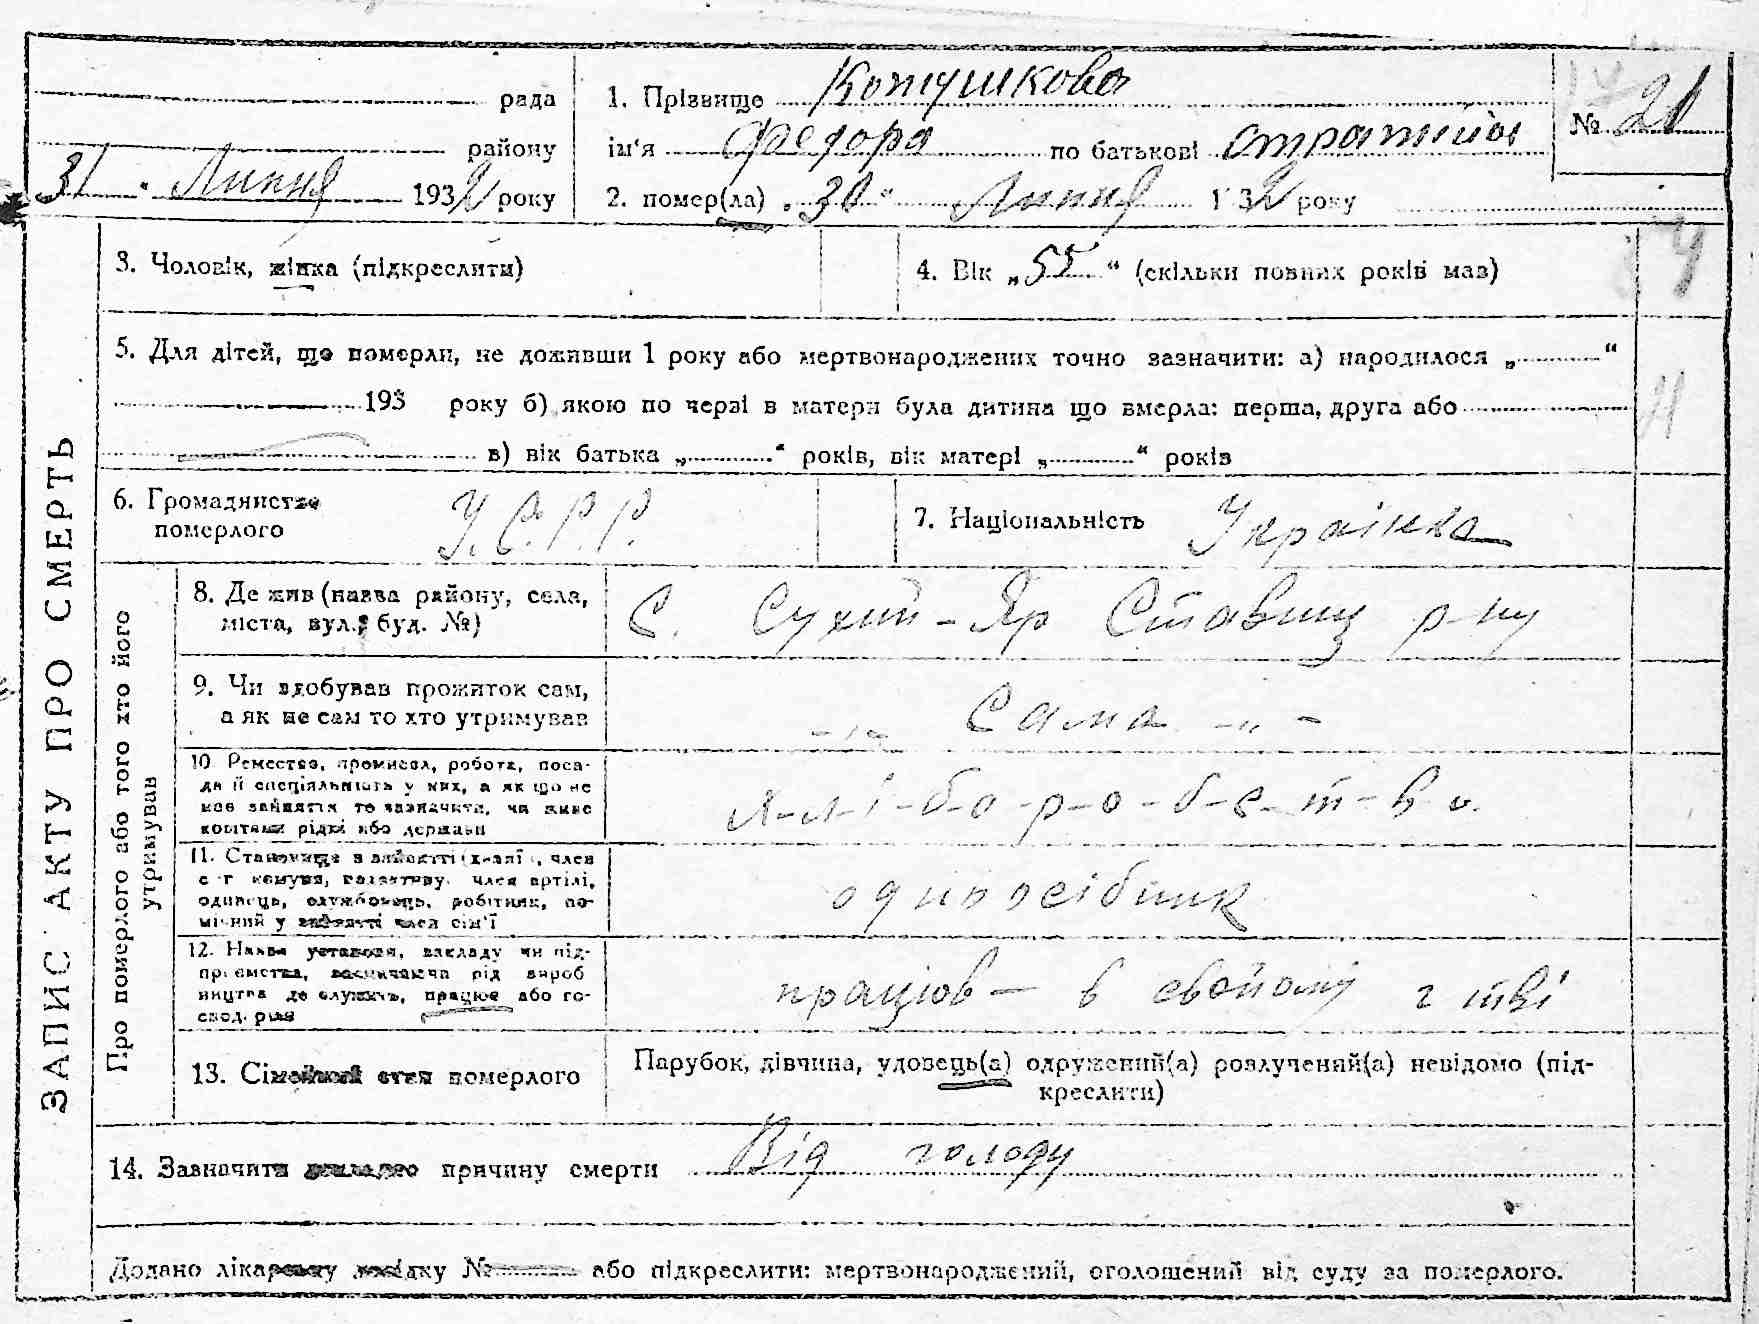 рада
району
31 Липня 1932 року
1. Прізвище Котушкова
ім'я Федора по батькові
2. помер(ла) „30" Липня 1932 року
№
3. Чоловік, жінка (підкреслити)
4. Вік „55" (скільки повних років має)
5. Для дітей, що померли, не доживши 1 року або мертвонароджених точно зазначити: а) народилося „ "
193 року б) якою по черзі в матери була дитина що вмерла: перша, друга або
в) вік батька „ " років, вік матері „ " років
6. Громадянство
померлого
У.С.Р.Р.
7. Національність Українка
ЗАПИС АКТУ ПРО СМЕРТЬ
Про померлого або того хто його
утримував
8. Де жив (назва району, села,
міста, вул., буд. №)
С. Сухий-Яр Ставищ р-ну
9. Чи здобував прожиток сам,
а як не сам то хто утримував
Сама
10. Ремество, промисел, робота, поса-
да й спеціяльність у них, а як що не
має заняття то зазначити, чи живе
коштами рідні або держави
х-л-і-б-о-р-о-б-с-т-в-о.
11. Становище в занятті член
с-г комуни, колективу, член артілі,
одинець, службовець, робітник, по-
мічний у занятті член сім'ї
одноосібник
12. Назва установи, закладу чи під-
приємства, від вироб
ництва де служить, працює або го-
сподарює
працюв – в свойому г тві
13. Сімейний стан померлого
Парубок, дівчина, удовець(а) одружений(а) розлучений(а) невідомо (під-
креслити)
14. Зазначити докладно причину смерти Від голоду
Додано лікарську довідку № або підкреслити: мертвонароджений, оголошений від суду за померлого.